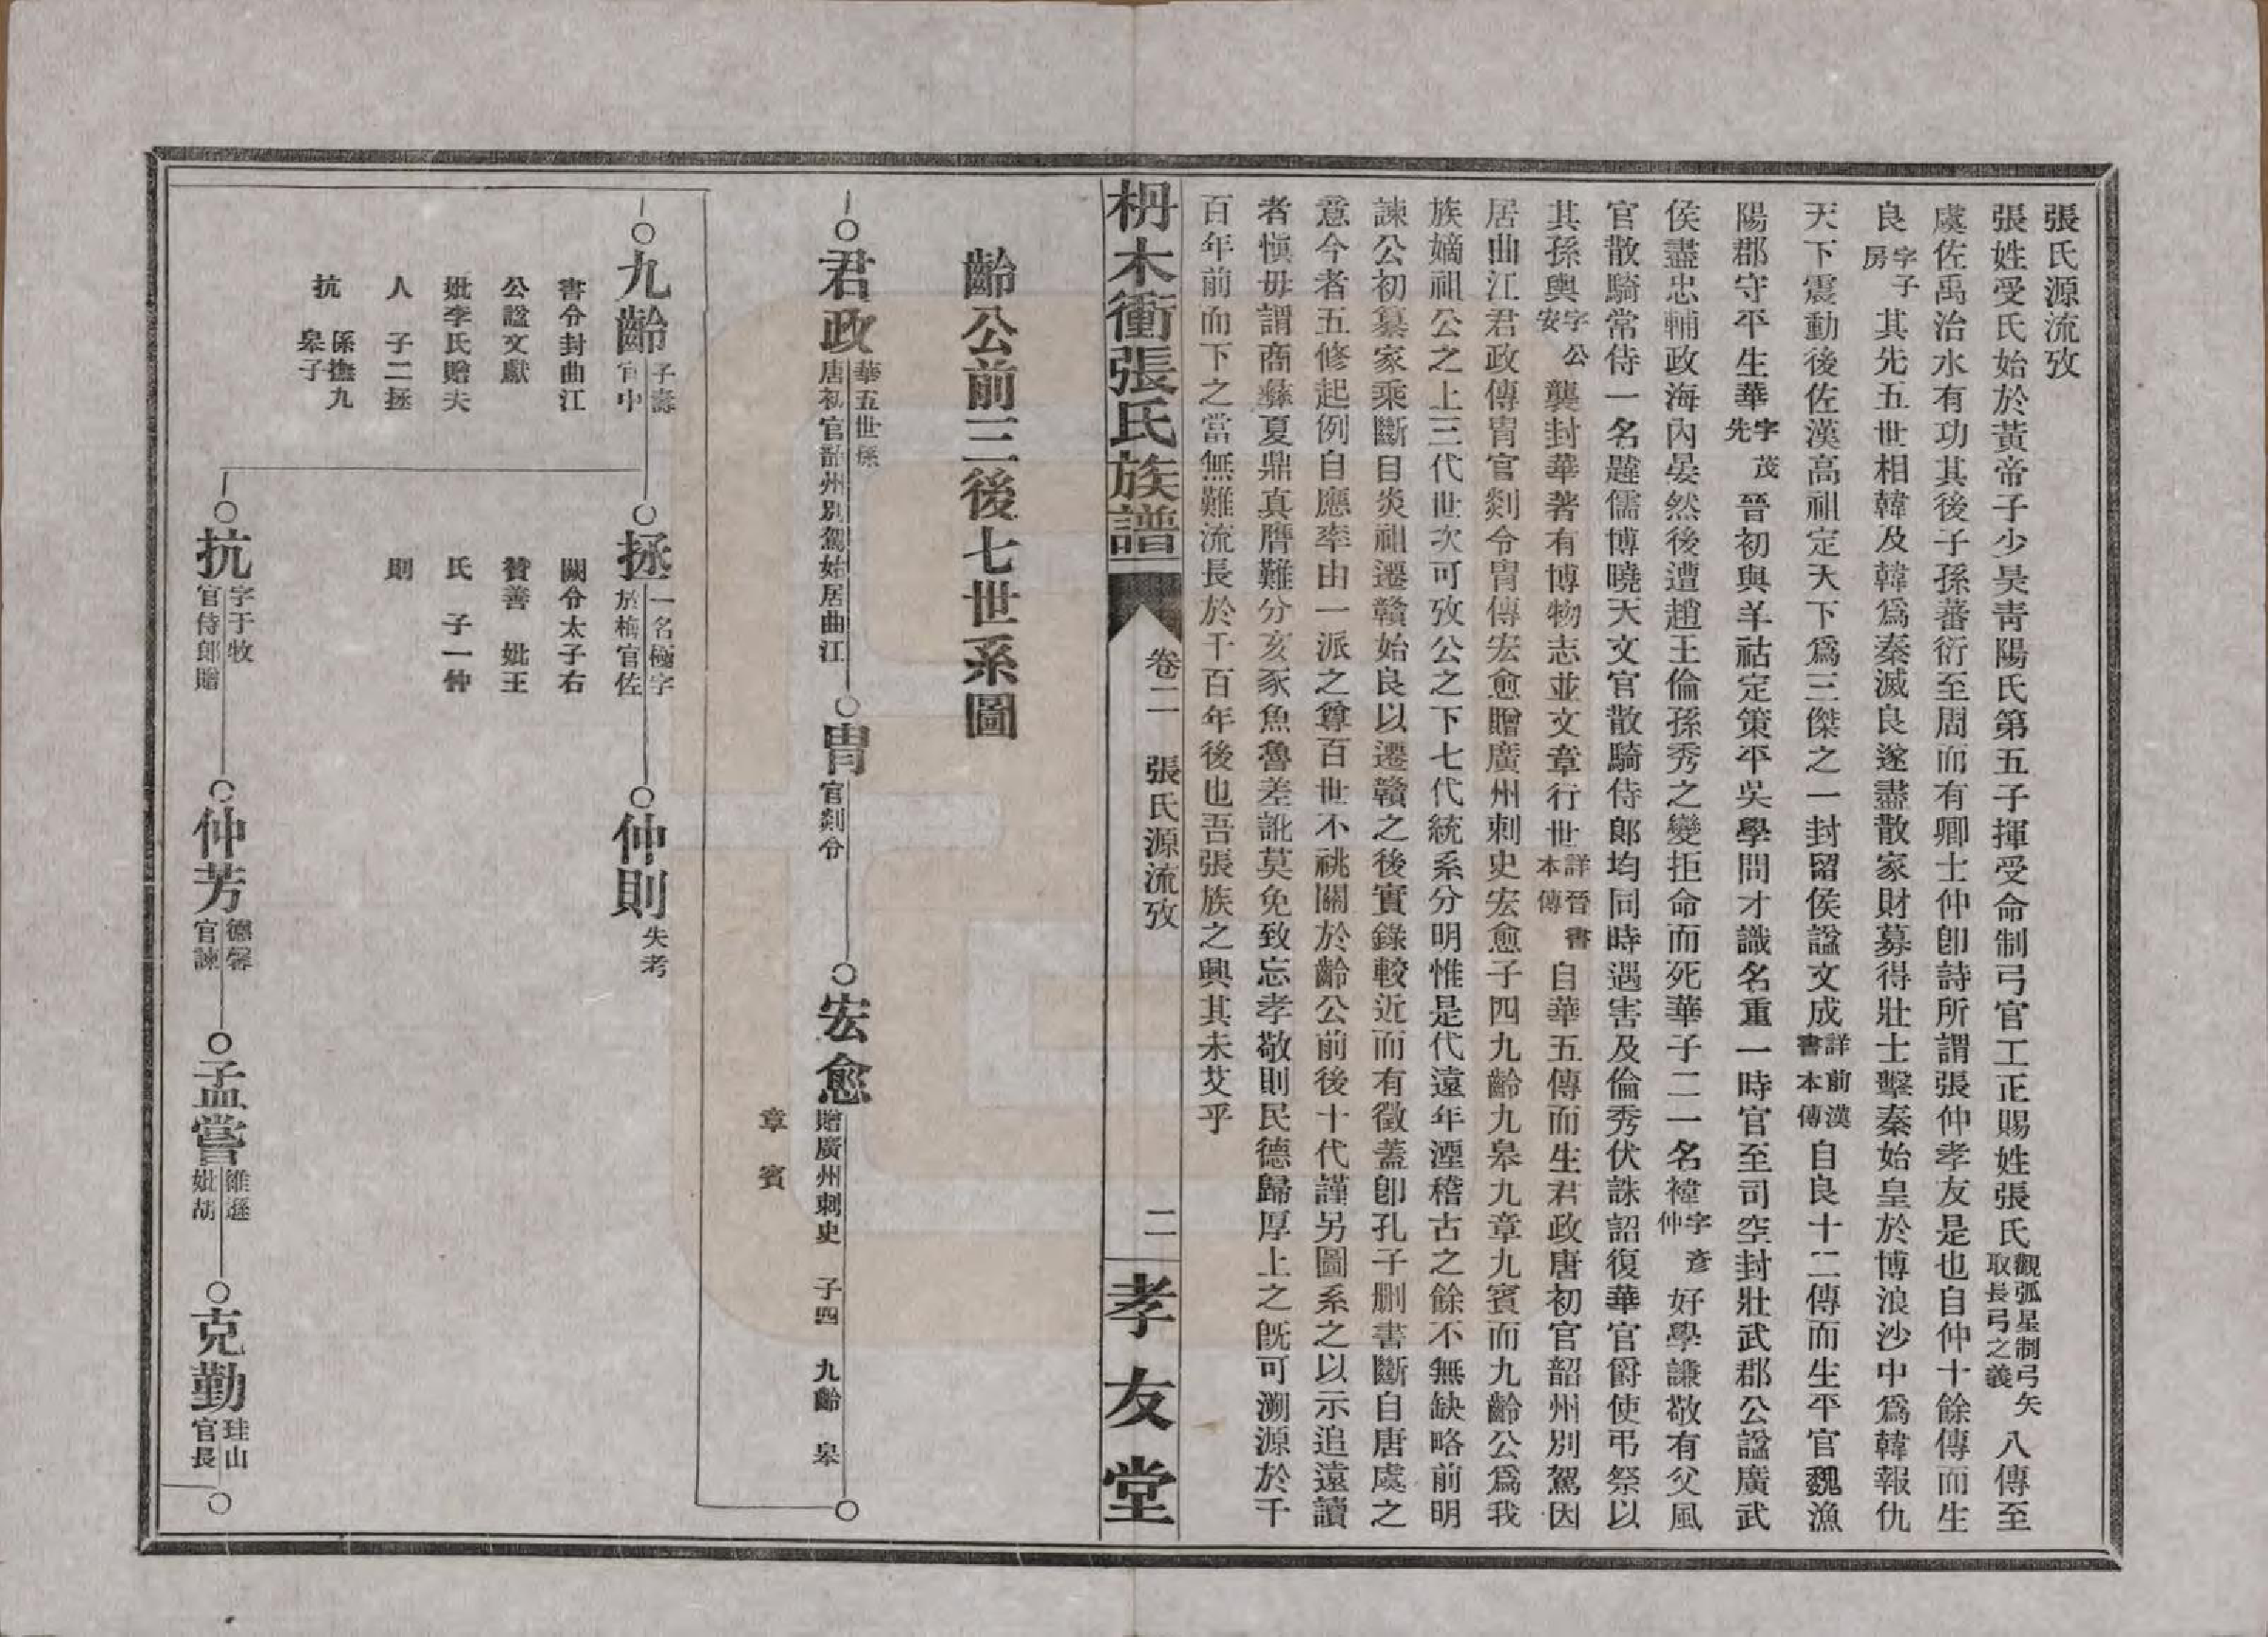 張氏源流攷
張姓受氏始於黃帝子少昊靑陽氏第五子揮受命制弓官工正賜姓張氏觀弧星制弓矢取長弓之義八傳至
虞佐禹治水有功其後子孫蕃衍至周而有卿士仲卽詩所謂張仲孝友是也自仲十餘傳而生
良字子房其先五世相韓及韓爲秦滅良遂盡散家財募得壯士擊秦始皇於博浪沙中爲韓報仇
天下震動後佐漢高祖定天下爲三傑之一封留侯諡文成詳前漢書本傳自良十二傳而生平官魏漁
陽郡守平生華字茂先晉初與羊祜定策平吳學問才識名重一時官至司空封壯武郡公諡廣武
侯盡忠輔政海內晏然後遭趙王倫孫秀之變拒命而死華子二一名禕字彥仲好學謙敬有父風
官散騎常侍一名韙儒博曉天文官散騎侍郎均同時遇害及倫秀伏誅詔復華官爵使弔祭以
其孫輿字公安襲封華著有博物志並文章行世詳晉書本傳自華五傳而生君政唐初官韶州別駕因
居曲江君政傳冑官剡令冑傳宏愈贈廣州刺史宏愈子四九齡九皋九章九賓而九齡公爲我
族嫡祖公之上三代世次可攷公之下七代統系分明惟是代遠年湮稽古之餘不無缺略前明
諫公初纂家乘斷自炎祖遷贛始良以遷贛之後實錄較近而有徵蓋卽孔子删書斷自唐虞之
意今者五修起例自應率由一派之尊百世不祧關於齡公前後十代謹另圖系之以示追遠讀
者愼毋謂商彝夏鼎真贋難分亥豕魚魯差訛莫免致忘孝敬則民德歸厚上之旣可溯源於千
百年前而下之當無難流長於千百年後也吾張族之興其未艾乎
枬木衝張氏族譜 卷二 張氏源流攷 二 孝友堂
齡公前三後七世系圖
君政 華五世孫唐初官韶州別駕始居曲江 冑 官剡令 宏愈 贈廣州刺史 子四 九齡 皋
章 賓
九齡 子壽官中 拯 一名極字於梅官佐 仲則 失考
書令封曲江 闕令太子右
公諡文獻 贊善 妣王
妣李氏贈夫 氏 子一仲
人 子二拯 則
抗 係撫九皋子
抗 字于牧官侍郎贈 仲芳 德馨官諫 孟嘗 雒遜妣胡 克勤 珪山官長